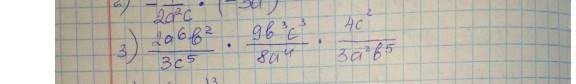 2a²c
3) 2a⁶b²/3c⁵ · 9b³c³/8a⁴ · 4c²/3a²b⁵